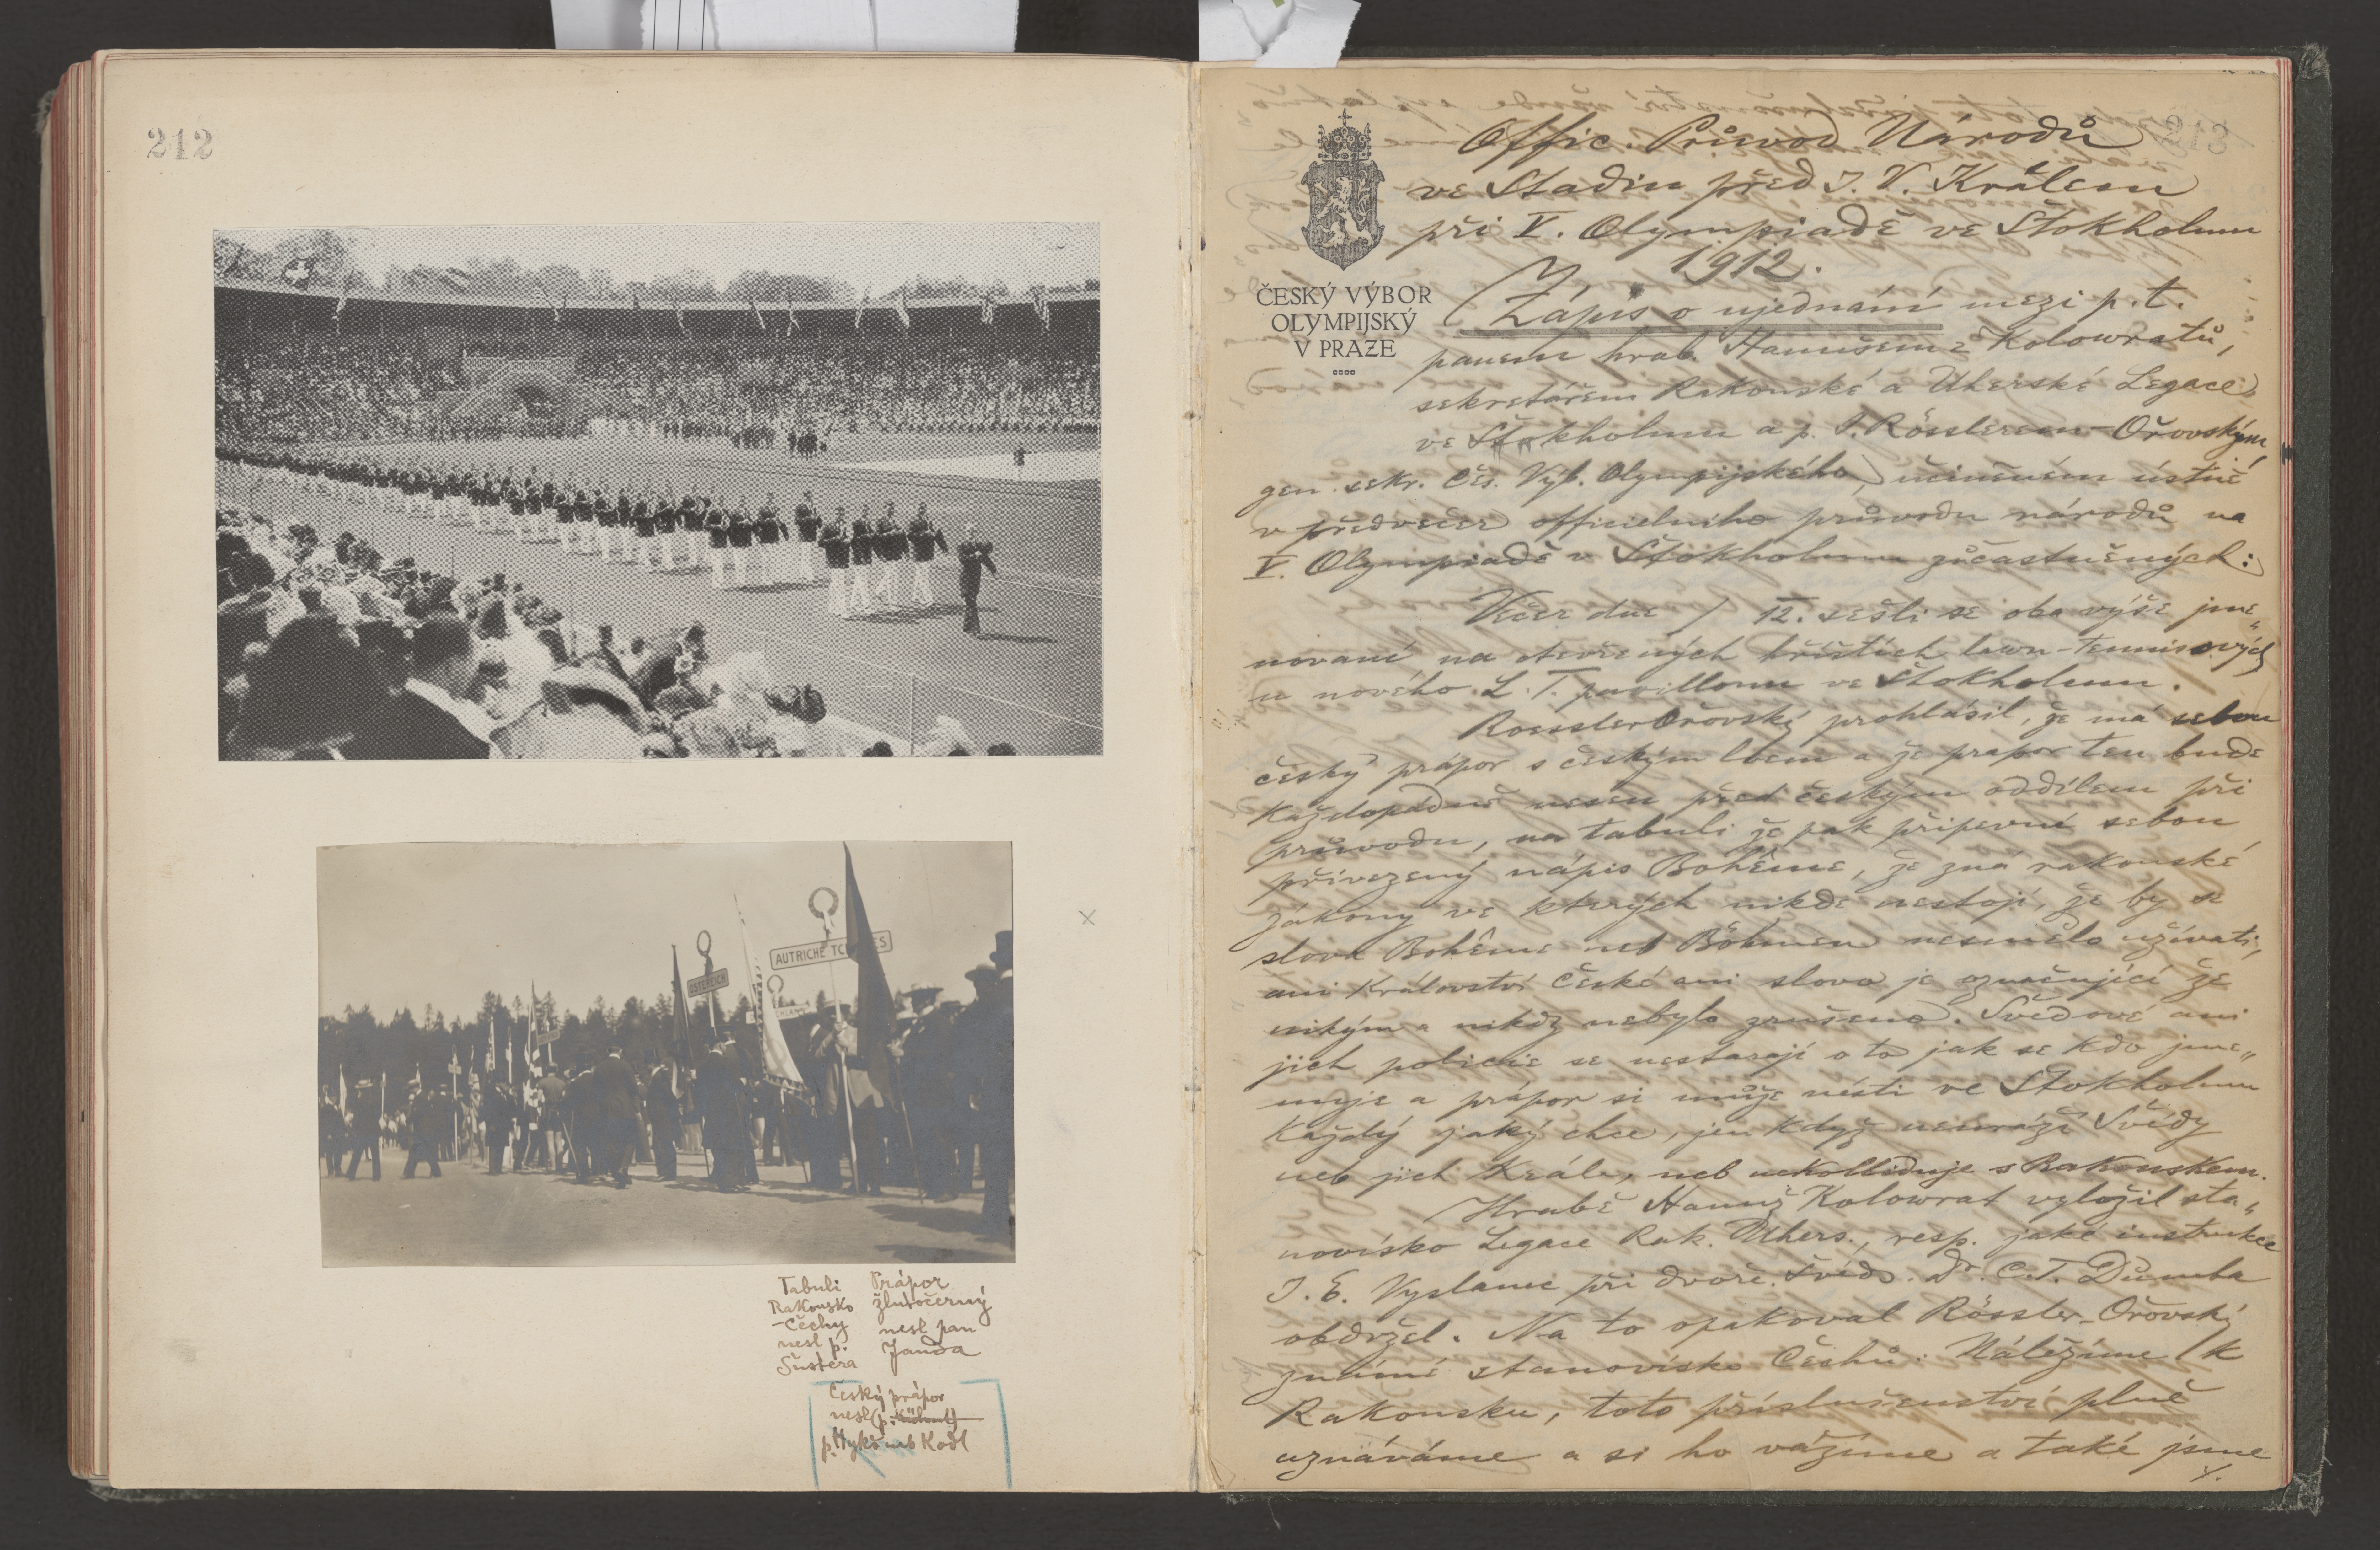 212
AUTRICHE TC ES
ÖSTERREICH
Tabuli
Rakousko
-Čechy
nesl p.
Šustera
Prápor
žlutočerný
nesl pan
Janda
Český prápor
nesl (p.
p. Hykš neb Kodl
213
Offic. Průvod Národů
ve Stadiu před J. V. Králem
při V. Olympiadě ve Štokholmu
1912.
ČESKÝ VÝBOR
OLYMPIJSKÝ
V PRAZE
Zápis o ujednání mezi p. t.
panem hrab. Hanušem z Kolowratů,
sekretářem Rakouské a Uherské Legace
ve Štokholmu a p. J. Rösslerem-Ořovským,
gen. sekr. Čes. Výb. Olympijského, učiněném ústně
v předvečer officielního průvodu národů na
V. Olympiadě v Štokholmu zúčastněných:
Večer dne / 12. sešli se oba výše jme„
novaní na otevřených hřištích lawn-tennisových
u nového L. T. pavillonu ve Štokholmu.
Roessler Ořovský prohlásil, že má sebou
český prápor s českým lvem a že prapor ten bude
každopádně nesen před českým oddílem při
průvodu, na tabuli že pak připevní sebou
přivezený nápis Bohême, že zná rakouské
zákony ve kterých nikde nestojí, že by se
slova Bohême neb Böhmen nesmělo užívati,
ani Království České ani slovo je označující že
nikým a nikdy nebylo zrušeno. Švédové ani
jich policie se nestarají o to jak se kdo jme„
nuje a prápor si může nésti ve Štokholmu
každý jaký chce, jen když neuráží Švédy
neb jich Krále, neb nekolliduje s Rakouskem.
Hrabě Hanuš Kolowrat vyložil sta„
novisko Legace Rak. Uhers., resp. jaké instrukce
J. E. Vyslanec při dvoře Švéds. Dr. C. T. Dumba
obdržel. Na to opakoval Rössler-Ořovský
známé stanovisko Čechů: Náležíme k
Rakousku, toto příslušenství plně
uznáváme a si ho vážíme a také jsme
./.